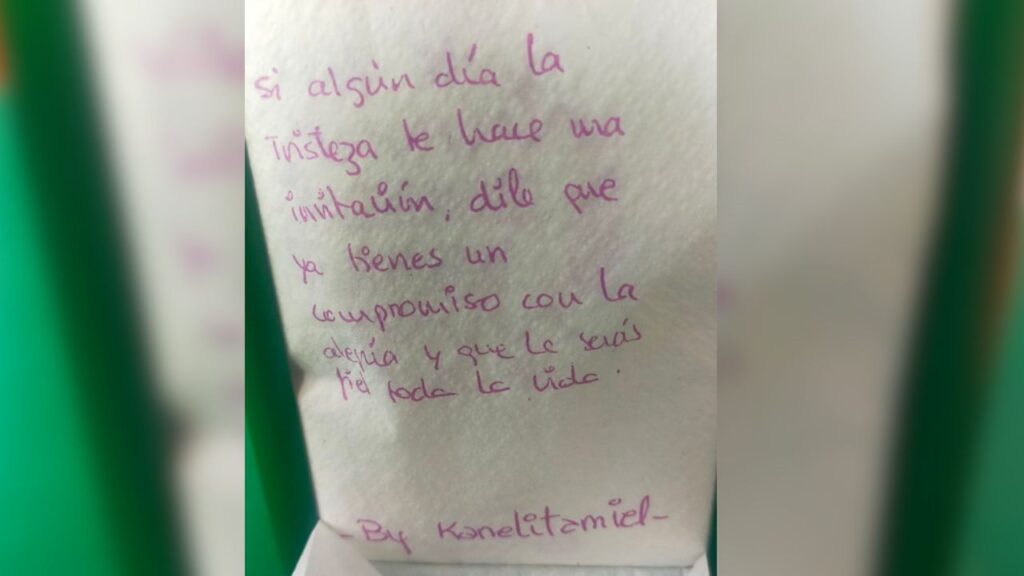 si algún día la
Tristeza te hace una
invitación, dile que
ya tienes un
compromiso con la
alegría y que le serás
fiel toda la vida.
-By Kanelitamiel-